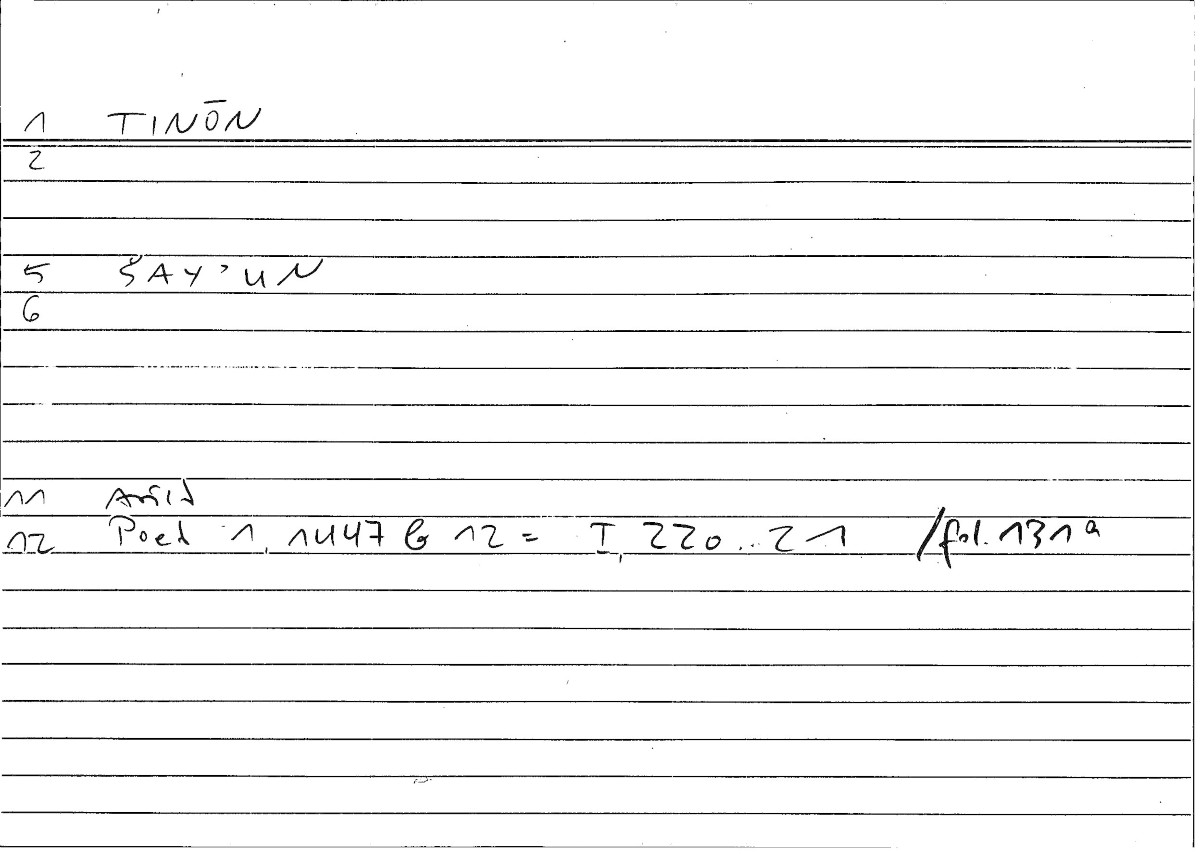 1 TINŌN
2
5 ŠAY'UN
6
11 Arist
12 Poet 1, 1447 b 12 = I, 220..21 /fol. 131a